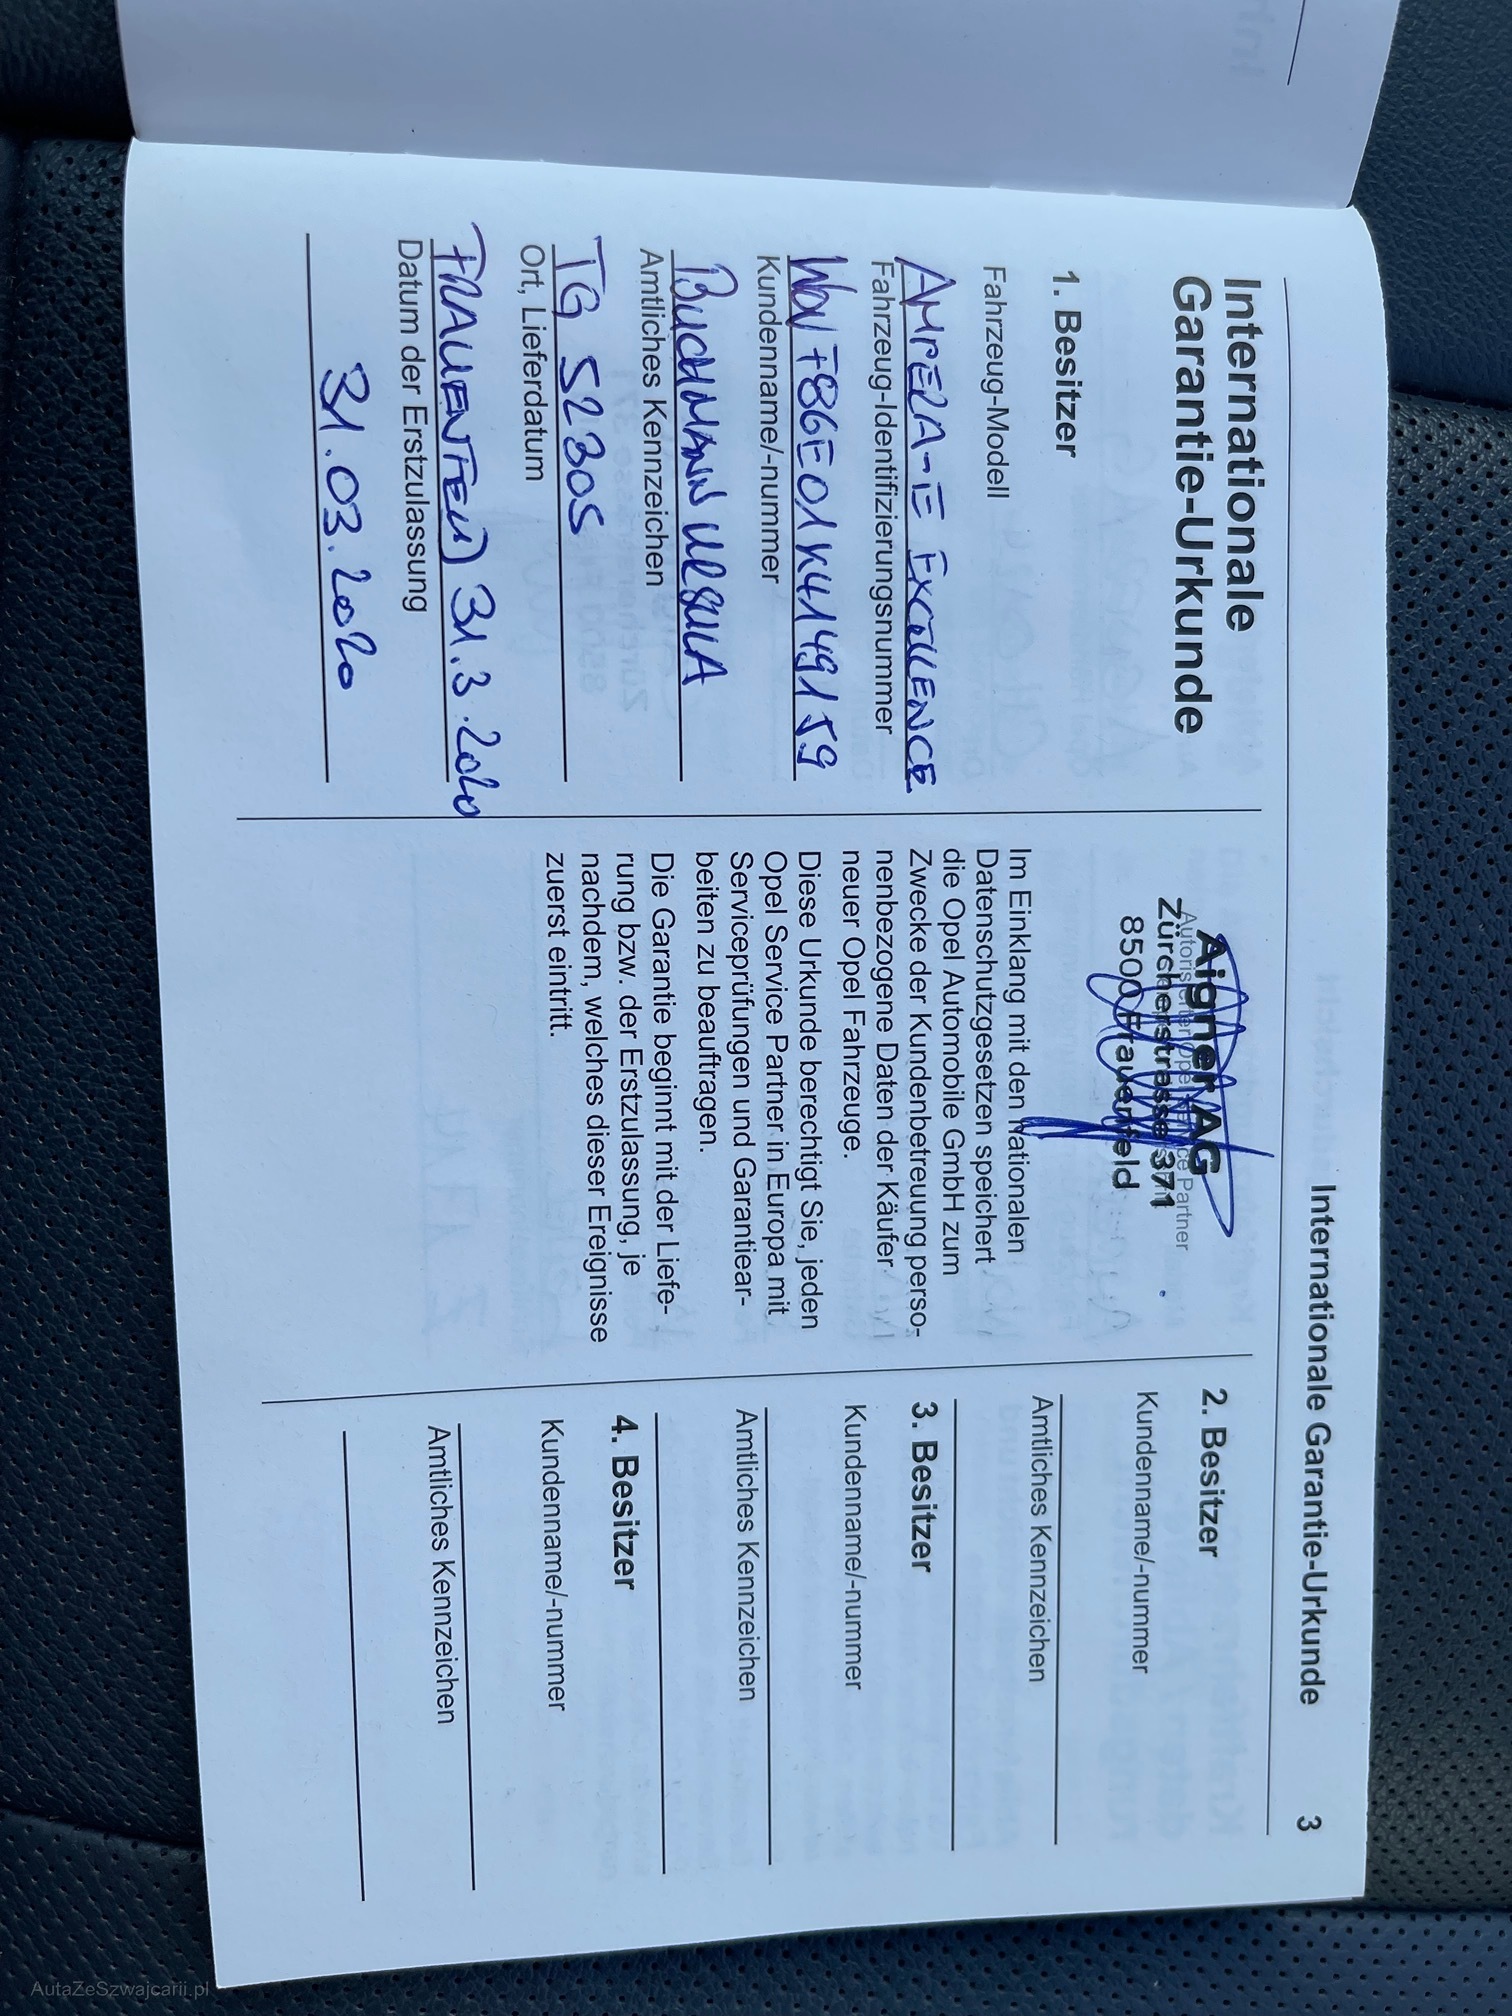 Internationale Garantie-Urkunde 3
Internationale
Garantie-Urkunde
1. Besitzer
Fahrzeug-Modell
AMPERA-E EXCELLENCE
Fahrzeug-Identifizierungsnummer
W0VF86E01K4149159
Kundenname/-nummer
BUCHMANN URSULA
Amtliches Kennzeichen
TG 52305
Ort, Lieferdatum
31.3.2020
Datum der Erstzulassung
31.03.2020
Aigner AG
Autorisierter Opel Service Partner
Zürcherstrasse 371
8500 Frauenfeld
Im Einklang mit den Nationalen
Datenschutzgesetzen speichert
die Opel Automobile GmbH zum
Zwecke der Kundenbetreuung perso-
nenbezogene Daten der Käufer
neuer Opel Fahrzeuge.
Diese Urkunde berechtigt Sie, jeden
Opel Service Partner in Europa mit
Serviceprüfungen und Garantiear-
beiten zu beauftragen.
Die Garantie beginnt mit der Liefe-
rung bzw. der Erstzulassung, je
nachdem, welches dieser Ereignisse
zuerst eintritt.
2. Besitzer
Kundenname/-nummer
Amtliches Kennzeichen
3. Besitzer
Kundenname/-nummer
Amtliches Kennzeichen
4. Besitzer
Kundenname/-nummer
Amtliches Kennzeichen
AutaZeSzwajcarii.pl